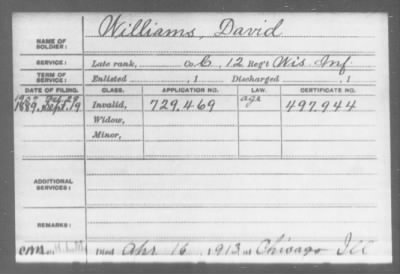 NAME OF SOLDIER: Williams, David
SERVICE: Late rank, Co. C, 12 Reg't Wis. Inf.
TERM OF SERVICE: Enlisted , 1 Discharged , 1
DATE OF FILING. CLASS. APPLICATION NO. LAW. CERTIFICATE NO.
1889, Sept. 19 Invalid, 729.469 age 497.944
Widow,
Minor,
ADDITIONAL SERVICES:
REMARKS:
Died Apr 16, 1913 at Chicago Ill